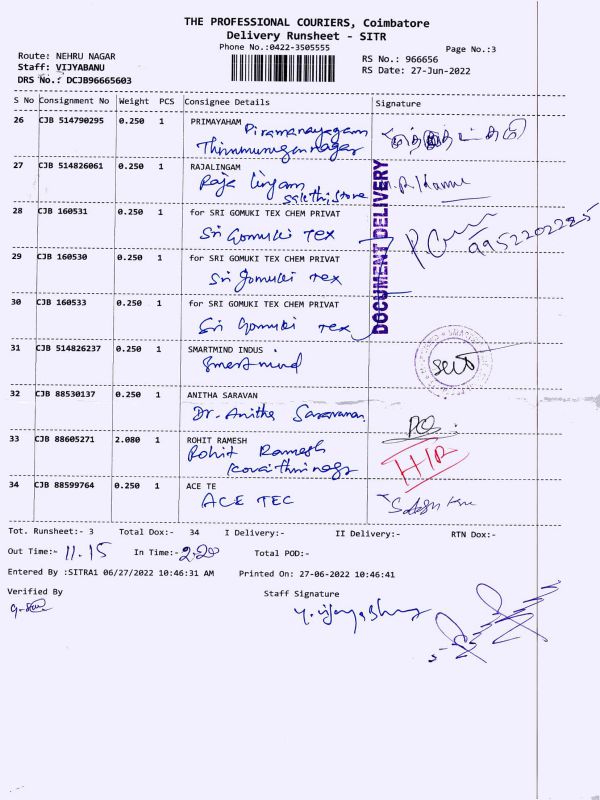 THE PROFESSIONAL COURIERS, Coimbatore
Delivery Runsheet - SITR
Phone No.:0422-3505555
Page No.:3
Route: NEHRU NAGAR
Staff: VIJYABANU
DRS No.: DCJB96665603
RS No.: 966656
RS Date: 27-Jun-2022
S No Consignment No Weight PCS Consignee Details Signature
26 CJB 514790295 0.250 1 PRIMAYAHAM
Piramanayagam
Thirumurugan nagar
27 CJB 514826061 0.250 1 RAJALINGAM
Raja lingam
Sakthi Store
28 CJB 160531 0.250 1 for SRI GOMUKI TEX CHEM PRIVAT
Sri Gomuki Tex
9952202225
29 CJB 160530 0.250 1 for SRI GOMUKI TEX CHEM PRIVAT
Sri Gomuki Tex
30 CJB 160533 0.250 1 for SRI GOMUKI TEX CHEM PRIVAT
Sri Gomuki Tex
DOCUMENT DELIVERY
31 CJB 514826237 0.250 1 SMARTMIND INDUS
Smart mind
32 CJB 88530137 0.250 1 ANITHA SARAVAN
Dr. Anitha Saravanan
33 CJB 88605271 2.080 1 ROHIT RAMESH
Rohit Ramesh
34 CJB 88599764 0.250 1 ACE TE
ACE TEC
Tot. Runsheet:- 3 Total Dox:- 34 I Delivery:- II Delivery:- RTN Dox:-
Out Time:- 11.15 In Time:- 2.20 Total POD:-
Entered By :SITRA1 06/27/2022 10:46:31 AM Printed On: 27-06-2022 10:46:41
Verified By Staff Signature